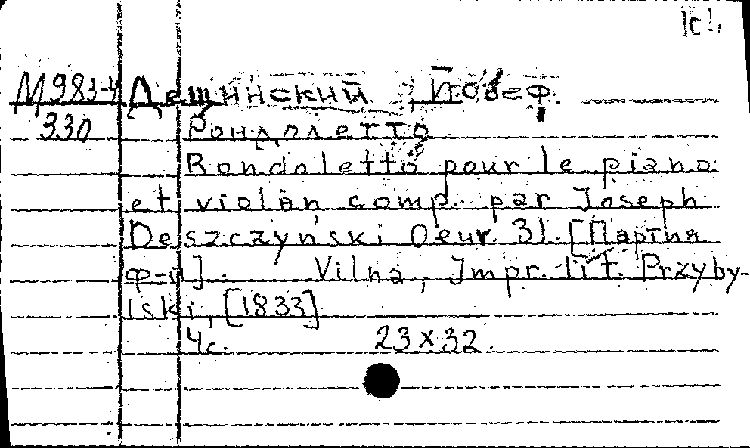 М983-4 Дещинский, Йозеф.
330 Рондолетто
Rondoletto pour le piano
et violon comp. par Joseph
Deszczyński Oeuv. 31. [Партия
ф-п]. Vilna, Impr. lit. Przyby-
lski, [1833]
4с. 23x32.